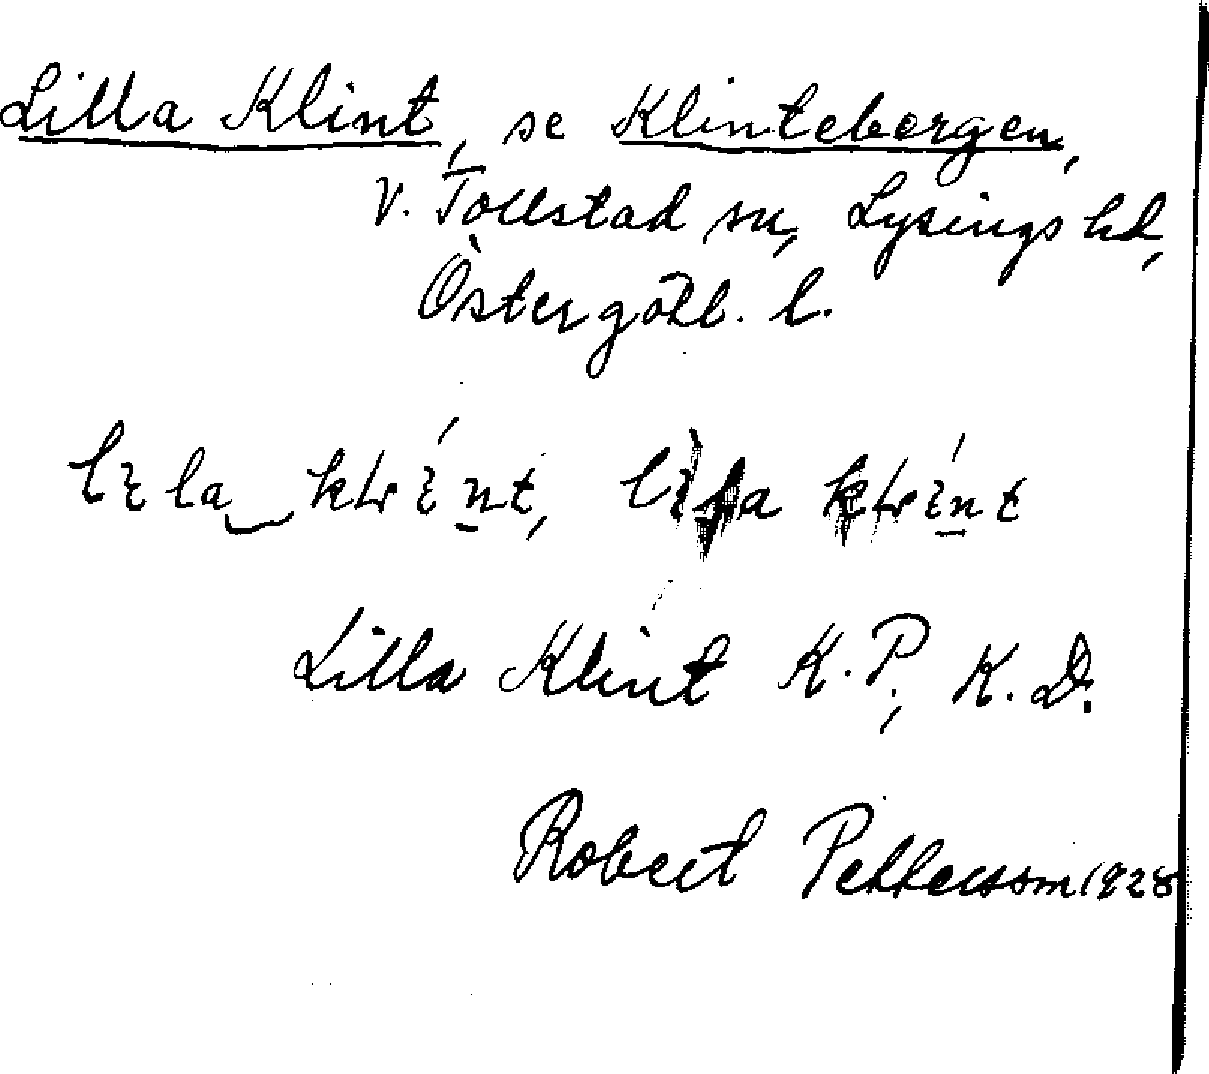 Lilla Klint, se Klintebergen,
V. Tollstad sn, Lysings hd,
Östergötl. l.
Lilla Klint K.P., K.D.
Robert Pettersson 1928